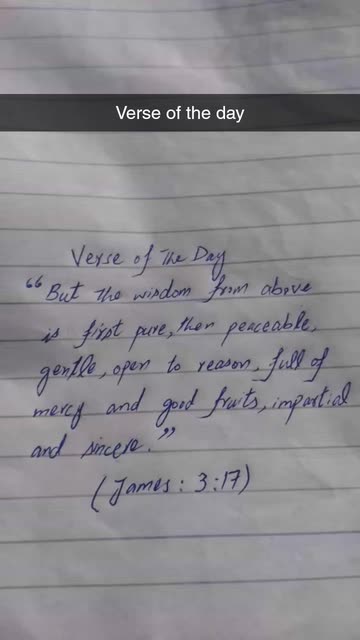 Verse of the day
Verse of The Day
"But the wisdom from above
is first pure, then peaceable,
gentle, open to reason, full of
mercy and good fruits, impartial
and sincere."
(James : 3:17)